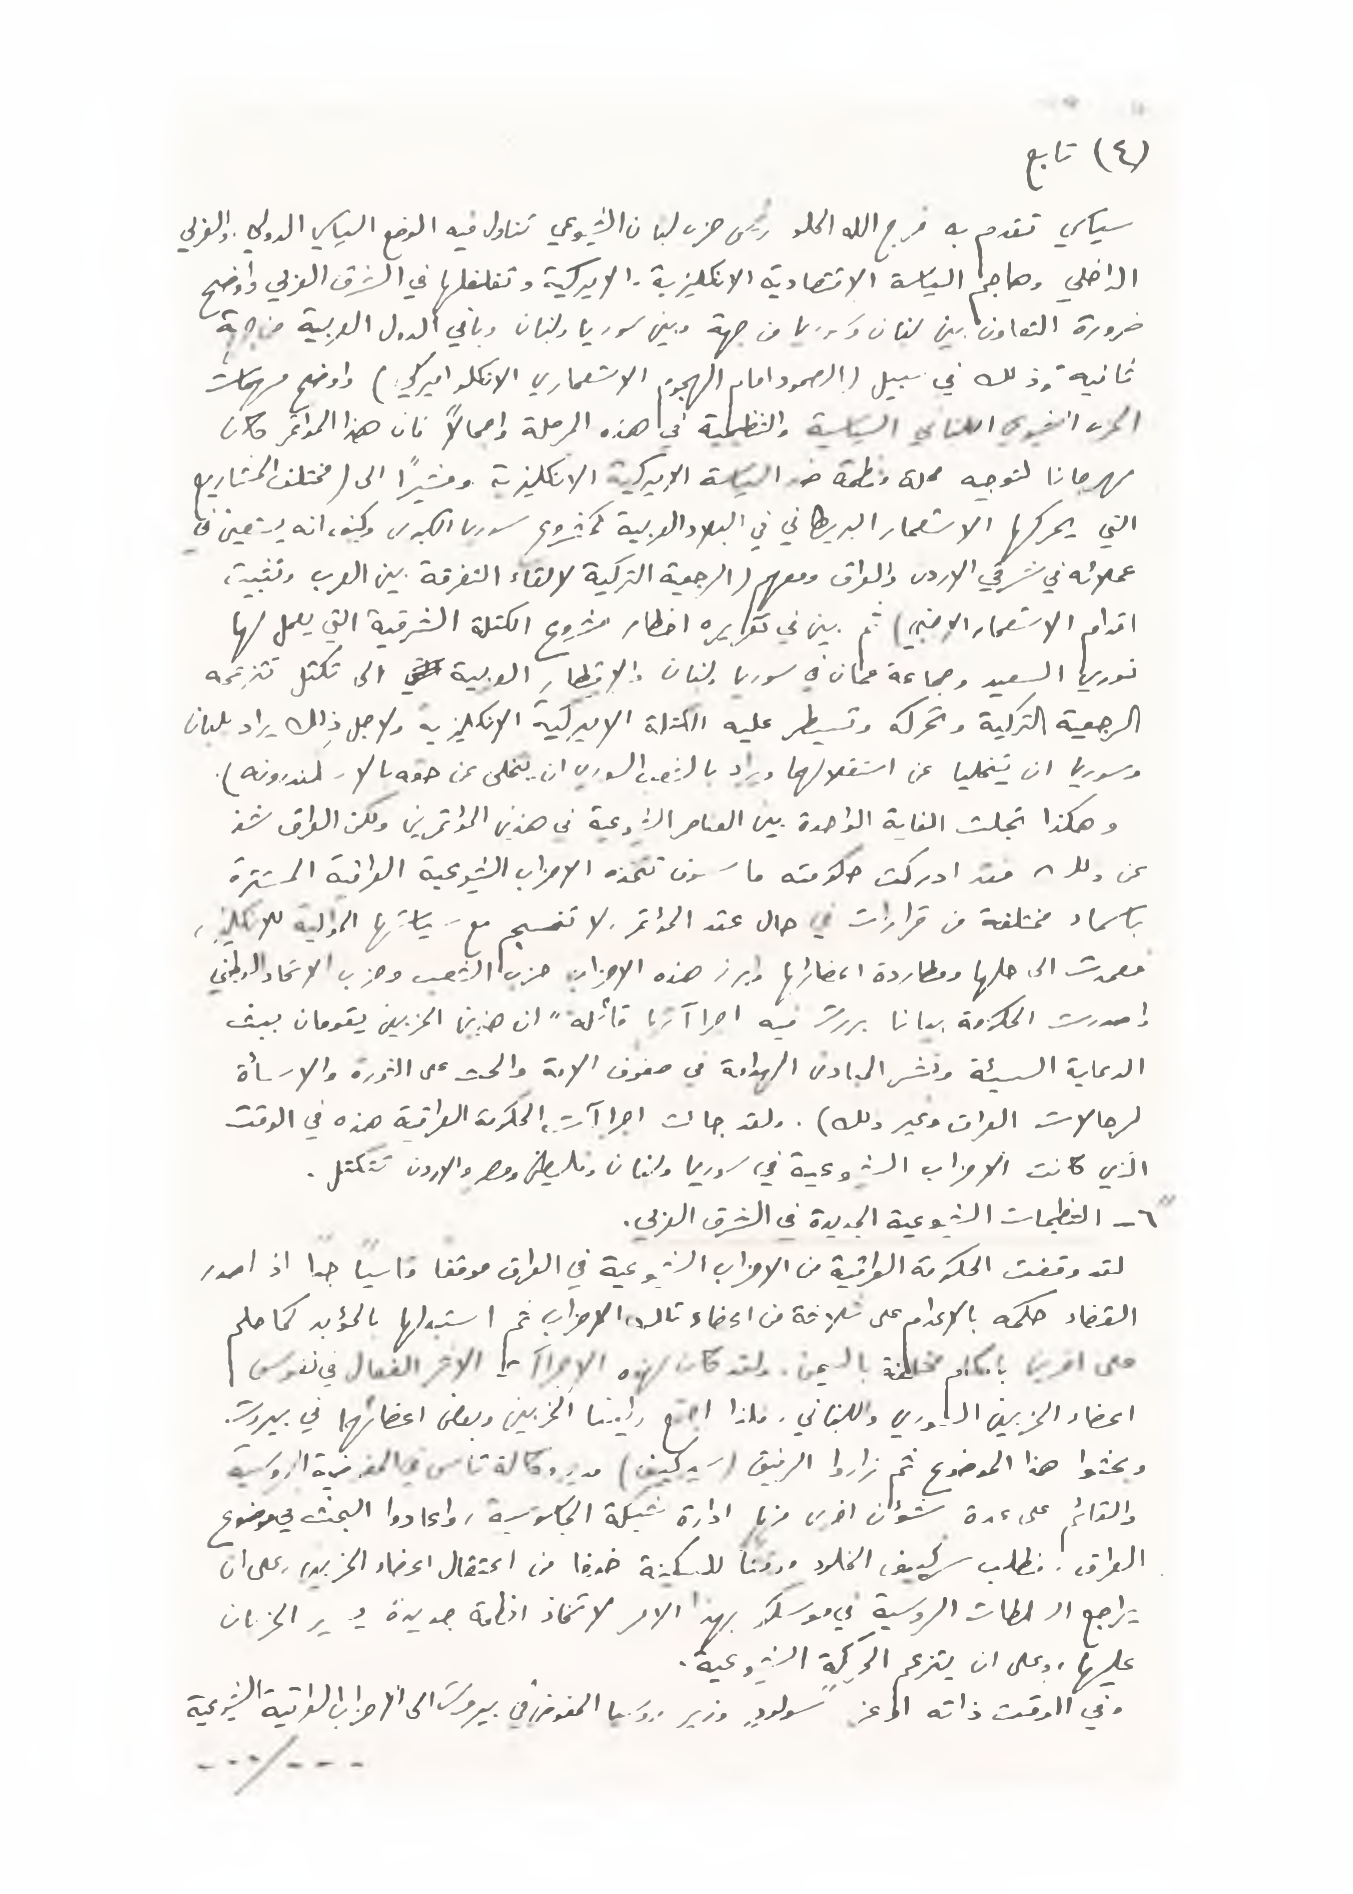 (٤) تابع
سياسي تقدم به فرج الله الحلو رئيس حزب لبنان الشيوعي تناول فيه الوضع السياسي الدولي والعربي
الداخلي وهاجم السياسة الاقتصادية الانكليزية والاميركية وتغلغلها في الشرق العربي واوضح
ضرورة التعاون بين لبنان وسوريا من جهة وبين سوريا ولبنان وباقي الدول العربية من جهة
ثانية وذلك في سبيل (الصمود امام الهجوم الاستعماري الانكلو اميركي) واوضح مهمات
الحزب الشيوعي اللبناني السياسية والتنظيمية في هذه المرحلة واجمالاً فان هذا المؤتمر كان
مهرجانا لتوجيه حملة منظمة ضد السياسة الاميركية الانكليزية ومشيرًا الى (مختلف المشاريع
التي يحركها الاستعمار البريطاني في البلاد العربية كمشروع سوريا الكبرى وكيف انه يستعين في
عملائه في شرقي الاردن والعراق ومعهم (الرجعية التركية لالقاء التفرقة بين العرب وتثبيت
اقدام الاستعمار الاجنبي) ثم بين في تقريره اخطار مشروع الكتلة الشرقية التي يعمل لها
نوري السعيد وجماعة عمان في سوريا ولبنان والاقطار العربية الى تكتل تتزعمه
الرجعية التركية وتحركه وتسيطر عليه الكتلة الاميركية الانكليزية ولاجل ذلك يراد بلبنان
وسوريا ان يتخليا عن استقلالهما ويراد بالشعب السوري ان يتخلى عن حقه بالاسكندرونه).
وهكذا تجلت الغاية الواحدة بين العناصر الشيوعية في هذين المؤتمرين ولكن العراق شذ
عن ذلك فقد ادركت حكومته ما سوف تتخذه الاحزاب الشيوعية العراقية المستترة
باسماء مختلفة من قرارات في حال عقد المؤتمر لا تنسجم مع سياستها الموالية للانكليز،
فعمدت الى حلها ومطاردة اعضائها وابرز هذه الاحزاب حزب الشعب وحزب الاتحاد الوطني
واصدرت الحكومة بيانا بررت فيه اجراآتها قائلة "ان هذين الحزبين يقومان ببث
الدعاية السيئة ونشر المبادئ الهدامة في صفوف الامة والحث على الثورة والاساءة
لرجالات العراق وغير ذلك). ولقد جاءت اجراآت الحكومة العراقية هذه في الوقت
الذي كانت الاحزاب الشيوعية في سوريا ولبنان وفلسطين ومصر والاردن تتكتل.
٦ – التنظيمات الشيوعية الجديدة في الشرق العربي.
لقد وقفت الحكومة العراقية من الاحزاب الشيوعية في العراق موقفا قاسيًا جدًا اذ اصدر
القضاء حكمه بالاعدام على ثلاثة من اعضاء تلك الاحزاب ثم استبدلها بالمؤبد كما حكم
على اخرين باحكام مختلفة بالسجن. ولقد كان لهذه الاجراآت الاثر الفعال في نفوس
اعضاء الحزبين السوري واللبناني. ولذا اجتمع رئيسا الحزبين وبعض اعضائهما في بيروت.
وبحثوا هذا الموضوع ثم زاروا الرفيق (سيركيف) مدير وكالة تاس في المفوضية الروسية
والقائم على عدة شؤون اخرى منها ادارة شبكة الجاسوسية، واعادوا البحث في موضوع
العراق. فطلب سركيف الخلود موقتاً للسكينة خوفا من اعتقال اعضاء الحزبين، على ان
يراجع السلطات الروسية في موسكو بهذا الامر لاتخاذ انظمة جديدة يسير الحزبان
عليها، وعلى ان يتزعم الحركة الشيوعية.
وفي الوقت ذاته اوعز "سولود" وزير روسيا المفوض في بيروت الى الاحزاب العراقية الشيوعية
---/...